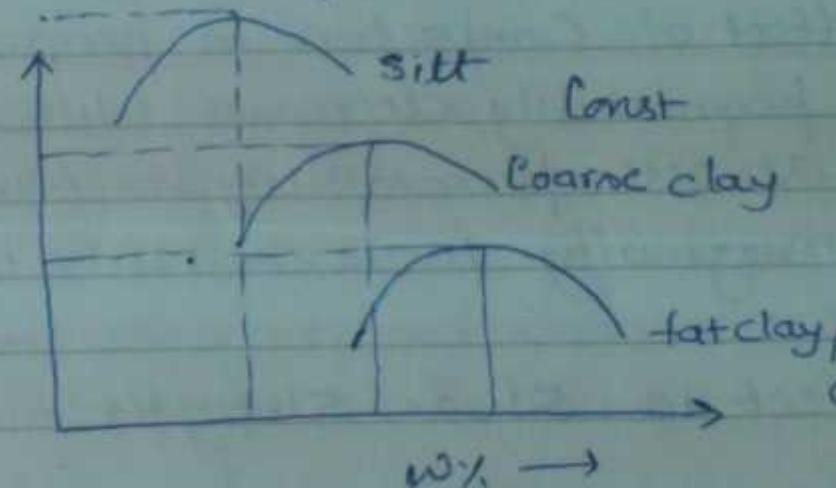 silt
Const
Coarse clay
fat clay
w% →